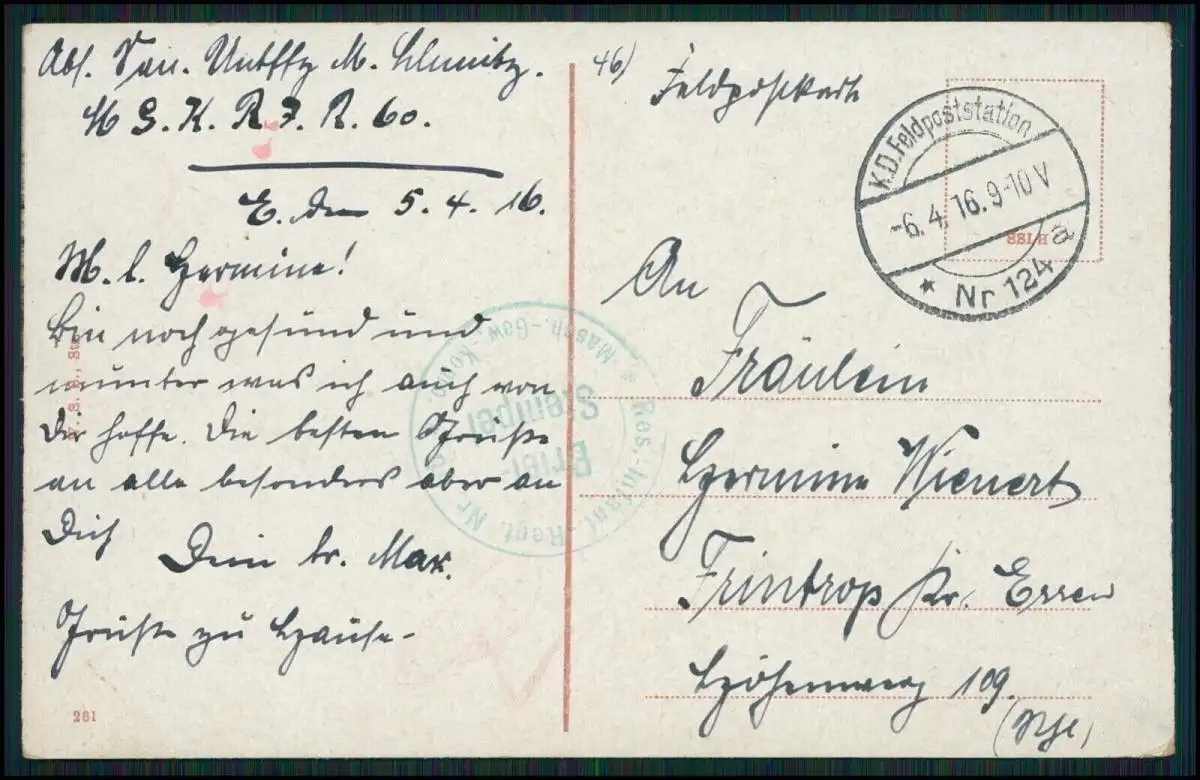 Abs. San. Untffz M. Schmitz.
M G. K. R. J. R. 60.
E. den 5. 4. 16.
M. l. Hermine!
Bin noch gesund und
munter was ich auch von
Dir hoffe. Die besten Grüße
an alle besonders aber an
Dich
Dein tr. Max.
Grüße zu Hause-
261
46)
Feldpostkarte
K.D. Feldpoststation
-6. 4. 16. 9-10 V
* Nr 124 a
An
Fräulein
Hermine Wienert
Frintrop Kr. Essen
Höhenweg 109.
(Rhl)
Brief-
Stempel
* Res. Infant.-Regt. Nr. 60
Masch.-Gew.-Komp.